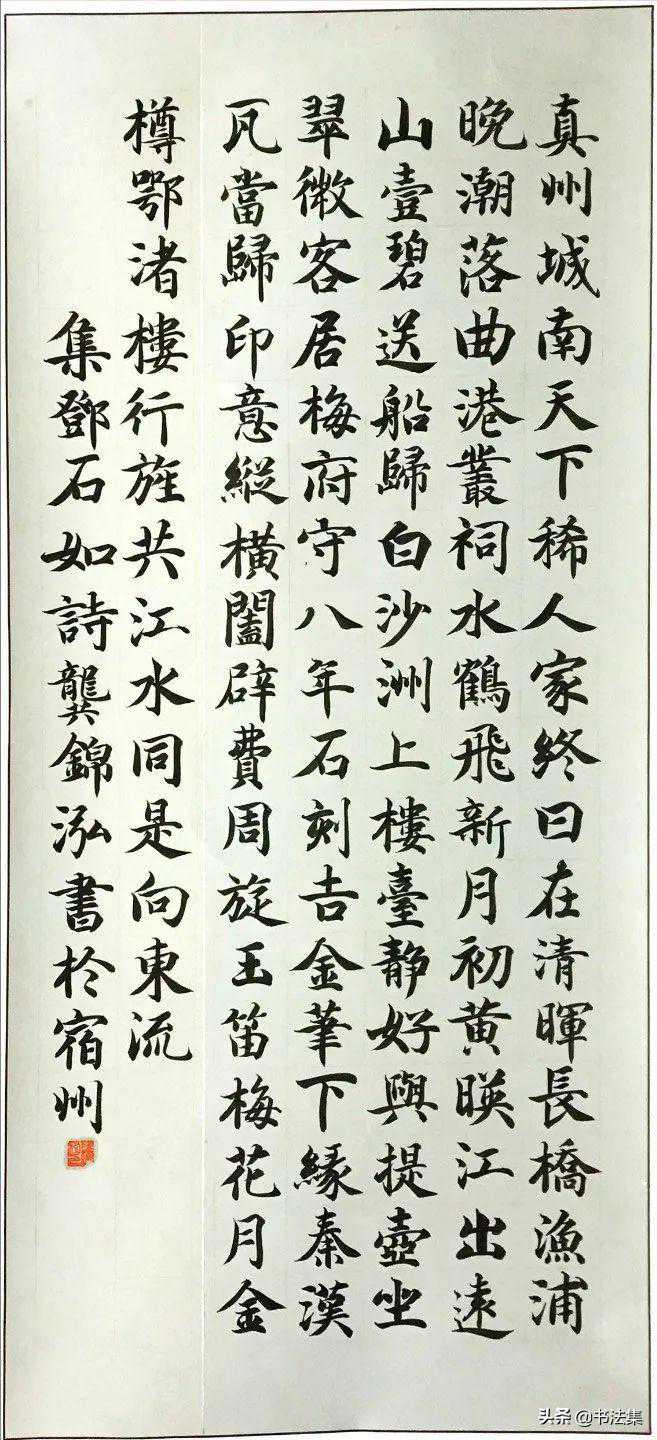 真州城南天下稀人家終日在清暉長橋漁浦
晚潮落曲港叢祠水鶴飛新月初黄暎江出遠
山壹碧送船歸白沙洲上樓臺静好與提壺坐
翠微客居梅府守八年石刻吉金筆下緣秦漢
瓦當歸印意縱横闔辟費周旋玉笛梅花月金
樽鄂渚樓行旌共江水同是向東流
集鄧石如詩龔錦泓書於宿州
头条 @书法集